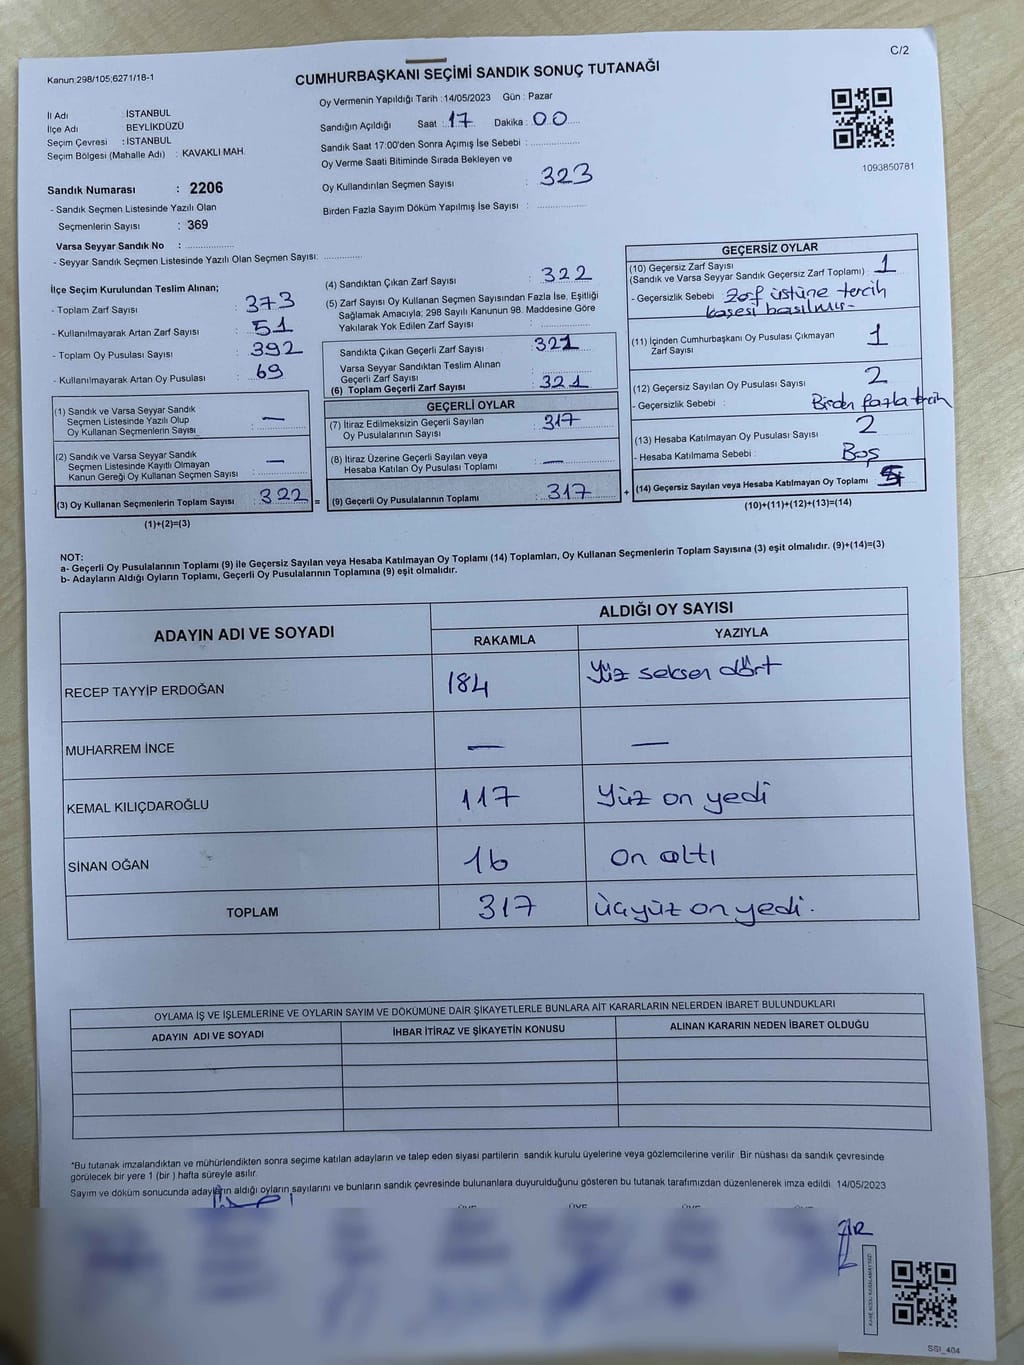 C/2
Kanun:298/105;6271/18-1
CUMHURBAŞKANI SEÇİMİ SANDIK SONUÇ TUTANAĞI
İl Adı : İSTANBUL
İlçe Adı : BEYLİKDÜZÜ
Seçim Çevresi : İSTANBUL
Seçim Bölgesi (Mahalle Adı) : KAVAKLI MAH.
Sandık Numarası : 2206
- Sandık Seçmen Listesinde Yazılı Olan
Seçmenlerin Sayısı : 369
Varsa Seyyar Sandık No :
- Seyyar Sandık Seçmen Listesinde Yazılı Olan Seçmen Sayısı:
Oy Vermenin Yapıldığı Tarih :14/05/2023 Gün : Pazar
Sandığın Açıldığı Saat : 17 Dakika : 00
Sandık Saat 17:00'den Sonra Açımış İse Sebebi :
Oy Verme Saati Bitiminde Sırada Bekleyen ve
Oy Kullandırılan Seçmen Sayısı : 323
Birden Fazla Sayım Döküm Yapılmış İse Sayısı :
1093850781
İlçe Seçim Kurulundan Teslim Alınan;
- Toplam Zarf Sayısı : 373
- Kullanılmayarak Artan Zarf Sayısı : 51
- Toplam Oy Pusulası Sayısı : 392
- Kullanılmayarak Artan Oy Pusulası : 69
(1) Sandık ve Varsa Seyyar Sandık
Seçmen Listesinde Yazılı Olup
Oy Kullanan Seçmenlerin Sayısı : —
(2) Sandık ve Varsa Seyyar Sandık
Seçmen Listesinde Kayıtlı Olmayan
Kanun Gereği Oy Kullanan Seçmen Sayısı : —
(3) Oy Kullanan Seçmenlerin Toplam Sayısı : 322 =
(1)+(2)=(3)
(4) Sandıktan Çıkan Zarf Sayısı : 322
(5) Zarf Sayısı Oy Kullanan Seçmen Sayısından Fazla İse, Eşitliği
Sağlamak Amacıyla; 298 Sayılı Kanunun 98. Maddesine Göre
Yakılarak Yok Edilen Zarf Sayısı :
Sandıkta Çıkan Geçerli Zarf Sayısı : 321
Varsa Seyyar Sandıktan Teslim Alınan
Geçerli Zarf Sayısı :
(6) Toplam Geçerli Zarf Sayısı : 321
GEÇERLİ OYLAR
(7) İtiraz Edilmeksizin Geçerli Sayılan
Oy Pusulalarının Sayısı : 317
(8) İtiraz Üzerine Geçerli Sayılan veya
Hesaba Katılan Oy Pusulası Toplamı : —
(9) Geçerli Oy Pusulalarının Toplamı : 317 +
GEÇERSİZ OYLAR
(10) Geçersiz Zarf Sayısı : 1
(Sandık ve Varsa Seyyar Sandık Geçersiz Zarf Toplamı)
- Geçersizlik Sebebi : Zarf üstüne tercih
kaşesi basılmış-
(11) İçinden Cumhurbaşkanı Oy Pusulası Çıkmayan
Zarf Sayısı : 1
(12) Geçersiz Sayılan Oy Pusulası Sayısı : 2
- Geçersizlik Sebebi : Birden fazla tercih
(13) Hesaba Katılmayan Oy Pusulası Sayısı : 2
- Hesaba Katılmama Sebebi : Boş
(14) Geçersiz Sayılan veya Hesaba Katılmayan Oy Toplamı :
(10)+(11)+(12)+(13)=(14)
NOT:
a- Geçerli Oy Pusulalarının Toplamı (9) ile Geçersiz Sayılan veya Hesaba Katılmayan Oy Toplamı (14) Toplamları, Oy Kullanan Seçmenlerin Toplam Sayısına (3) eşit olmalıdır. (9)+(14)=(3)
b- Adayların Aldığı Oyların Toplamı, Geçerli Oy Pusulalarının Toplamına (9) eşit olmalıdır.
ADAYIN ADI VE SOYADI ALDIĞI OY SAYISI
RAKAMLA YAZIYLA
RECEP TAYYİP ERDOĞAN 184 Yüz seksen dört
MUHARREM İNCE — —
KEMAL KILIÇDAROĞLU 117 Yüz on yedi
SİNAN OĞAN 16 On altı
TOPLAM 317 Üçyüz on yedi.
OYLAMA İŞ VE İŞLEMLERİNE VE OYLARIN SAYIM VE DÖKÜMÜNE DAİR ŞİKAYETLERLE BUNLARA AİT KARARLARIN NELERDEN İBARET BULUNDUKLARI
ADAYIN ADI VE SOYADI İHBAR İTİRAZ VE ŞİKAYETİN KONUSU ALINAN KARARIN NEDEN İBARET OLDUĞU
*Bu tutanak imzalandıktan ve mühürlendikten sonra seçime katılan adayların ve talep eden siyasi partilerin sandık kurulu üyelerine veya gözlemcilerine verilir. Bir nüshası da sandık çevresinde
görülecek bir yere 1 (bir ) hafta süreyle asılır.
Sayım ve döküm sonucunda adayların aldığı oyların sayılarını ve bunların sandık çevresinde bulunanlara duyurulduğunu gösteren bu tutanak tarafımızdan düzenlenerek imza edildi. 14/05/2023
SSI_404